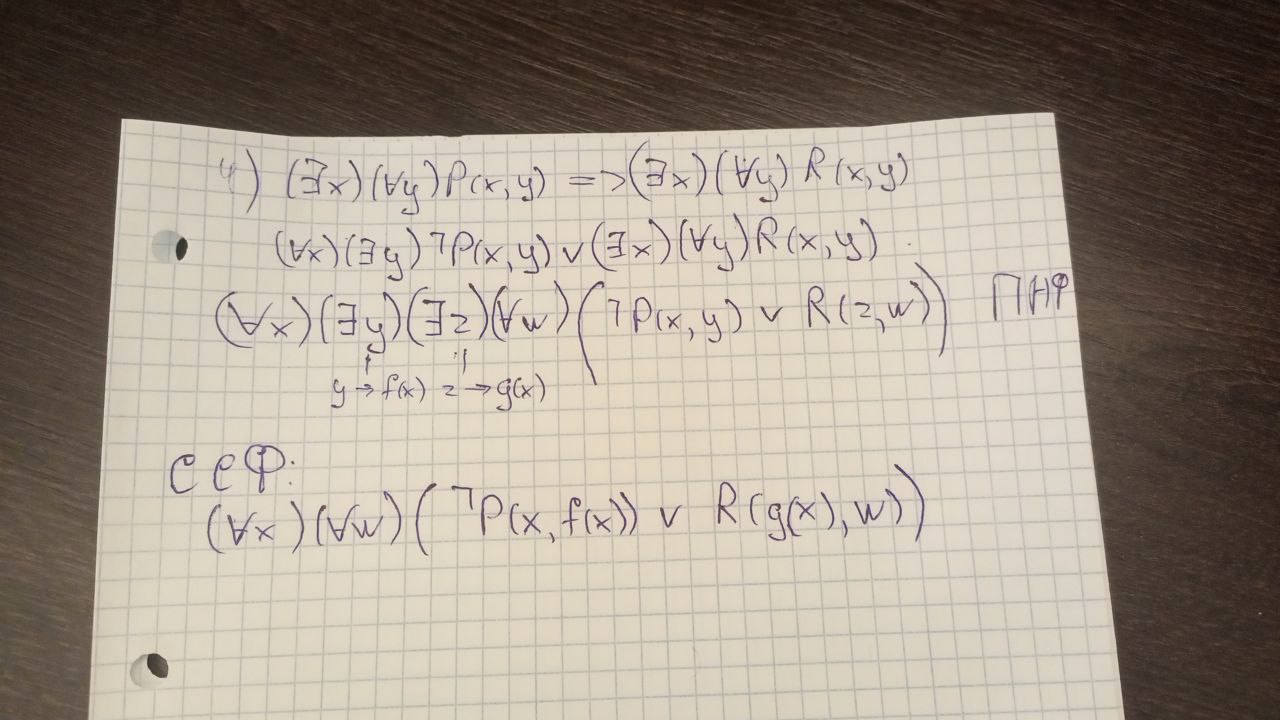 4) (∃x)(∀y)P(x,y) => (∃x)(∀y)R(x,y)
(∀x)(∃y)¬P(x,y)∨(∃x)(∀y)R(x,y).
(∀x)(∃y)(∃z)(∀w)(¬P(x,y) ∨ R(z,w)) ПНФ
y→f(x) z→g(x)
ССФ:
(∀x)(∀w)(¬P(x,f(x)) ∨ R(g(x),w))